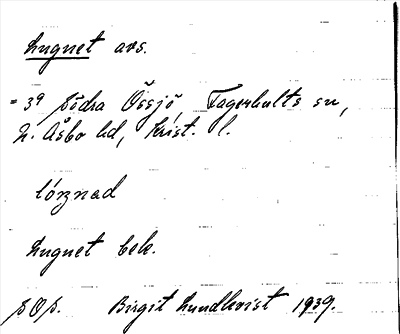 Lugnet avs.
= 3⁹ Södra Össjö Fagerhults sn,
N. Åsbo hd, Krist. l.
lóŋnad
Lugnet beb.
Birgit Lundkvist 1939.